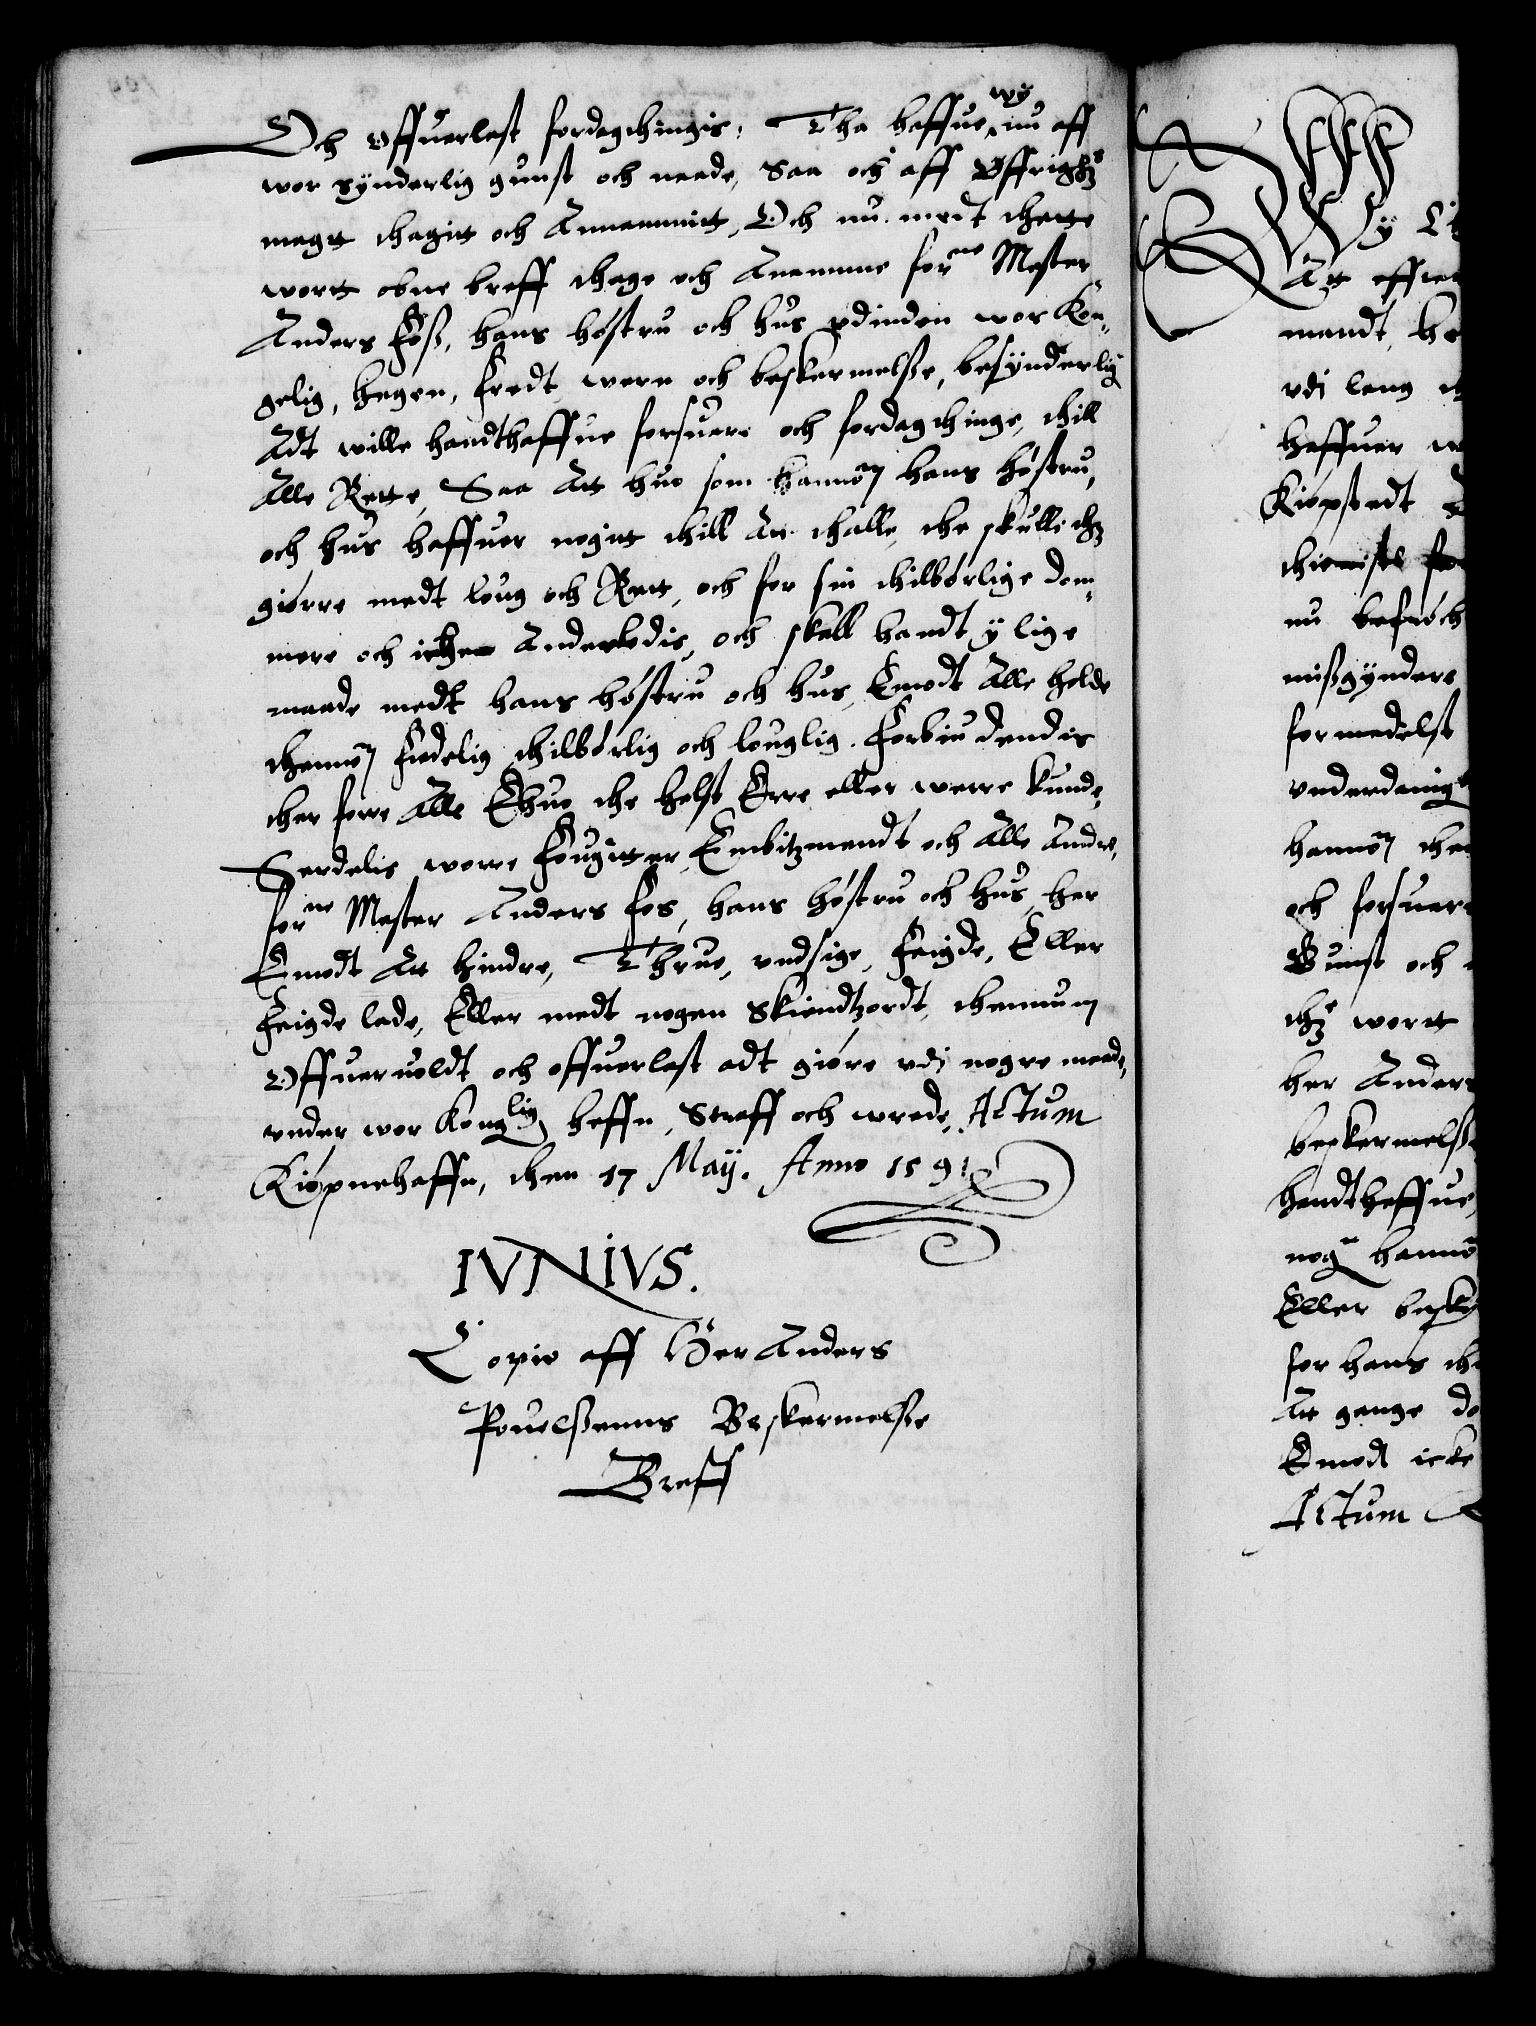 Och offuerlast fordagthingis, Tha haffue wy nu aff
wor synderlig gunst och naade, Saa och aff Øffrighz
magtt thagitt och Annammitt, Och nu medt thette
wortt obne breff thage och Anamme forne Mester
Anders Foss, hans høstru och hus vdinden wor Kon,
gelig, hegen, fredt wern och beskermelsse, besynderlig
Adt wille handthaffue forsuare och fordagthinge, thill
Alle Rette, Saa Att huo som hannom hans høstru,
och hus haffuer nogitt thill Att thalle, the skulle thz
giørre medt loug och Rett, och for sin thilbørlige dom,
mere och icke Anderledis, och skall handt y lige
maade medt hans høstru och hus, Emodt Alle holde
thennom fredelig thilbørlig och louglig. Forbiudendis
ther forre Alle Ehuo the helst Erre eller werre kunde,
Serdelis worre Fougitter, Embitzmendt och Alle Andre,
forne Mester Anders Fos, hans høstru och hus, her
Emodt Att hindre, Thrue, vndsige, Feigde, Eller
Feigde lade, Eller medt nogen Skiendtzordt, thennum
Offueruoldt och offuerlast adt giøre vdi nogre maade,
vnder wor Konglig heffn, Straff och wrede, Actum
Kiøpnehaffn, then 17 May. Anno 1591
IVNIVS.
Copie aff Her Anders
Pouelssenns Beskermelsse
Breff
Wy
Att effter
mandt, he
vdi lang
haffuer
Kiøpstedt
thieniste
nu
missgynders
formedelst
vnderdanig
hannom
och forsuare
Gunst och
thz wortt
her Anders
beskermelsse
handthaffue,
nogen hannom
Eller
for hans
Att gange
Emodt icke
Actum